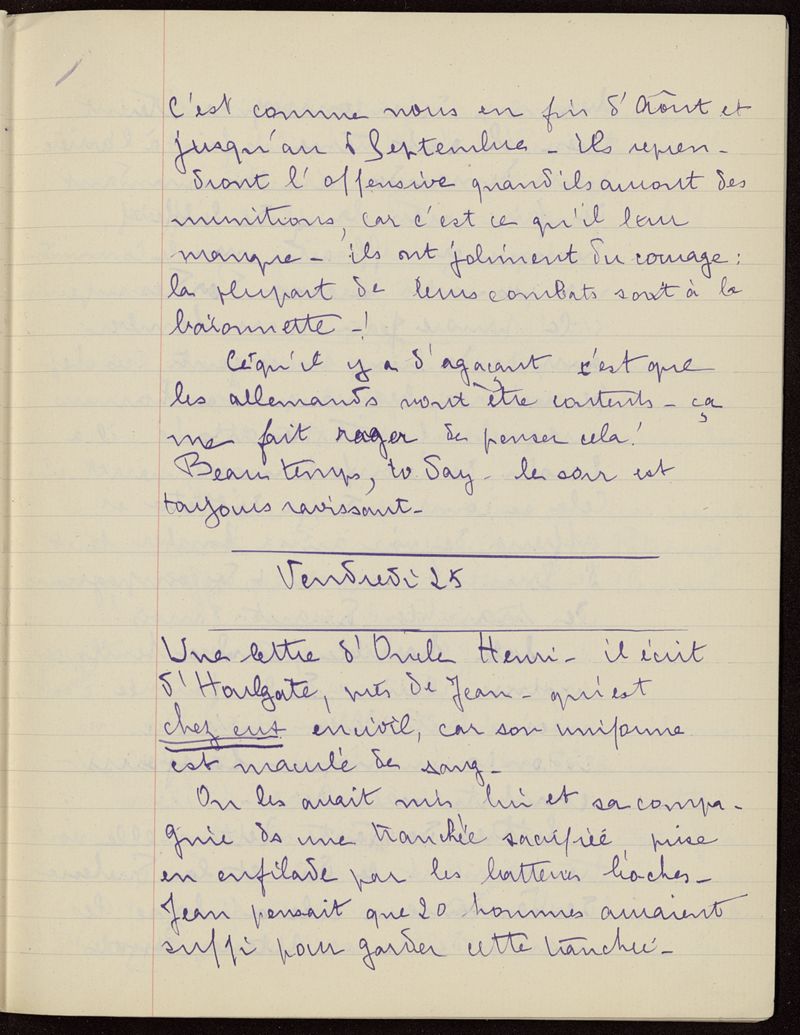 C'est comme nous en fin d'Août et
jusqu'au 6 Septembre - ils repren-
dront l'offensive quand ils auront des
munitions, car c'est ce qu'il leur
manque - ils ont joliment du courage :
la plupart de leurs combats sont à la
baïonnette - !
Ce qu'il y a d'agaçant c'est que
les allemands vont être contents - ça
me fait rager de penser cela !
Beau temps, to day - le soir est
toujours ravissant -
Vendredi 25
Une lettre d'Oncle Henri - il écrit
d'Houlgate, près de Jean - qui est
chez eux en civil, car son uniforme
est maculé de sang -
On les avait mis lui et sa compa-
gnie ds une tranchée sacrifiée, prise
en enfilade par les batteries boches -
Jean pensait que 20 hommes auraient
suffi pour garder cette tranchée -